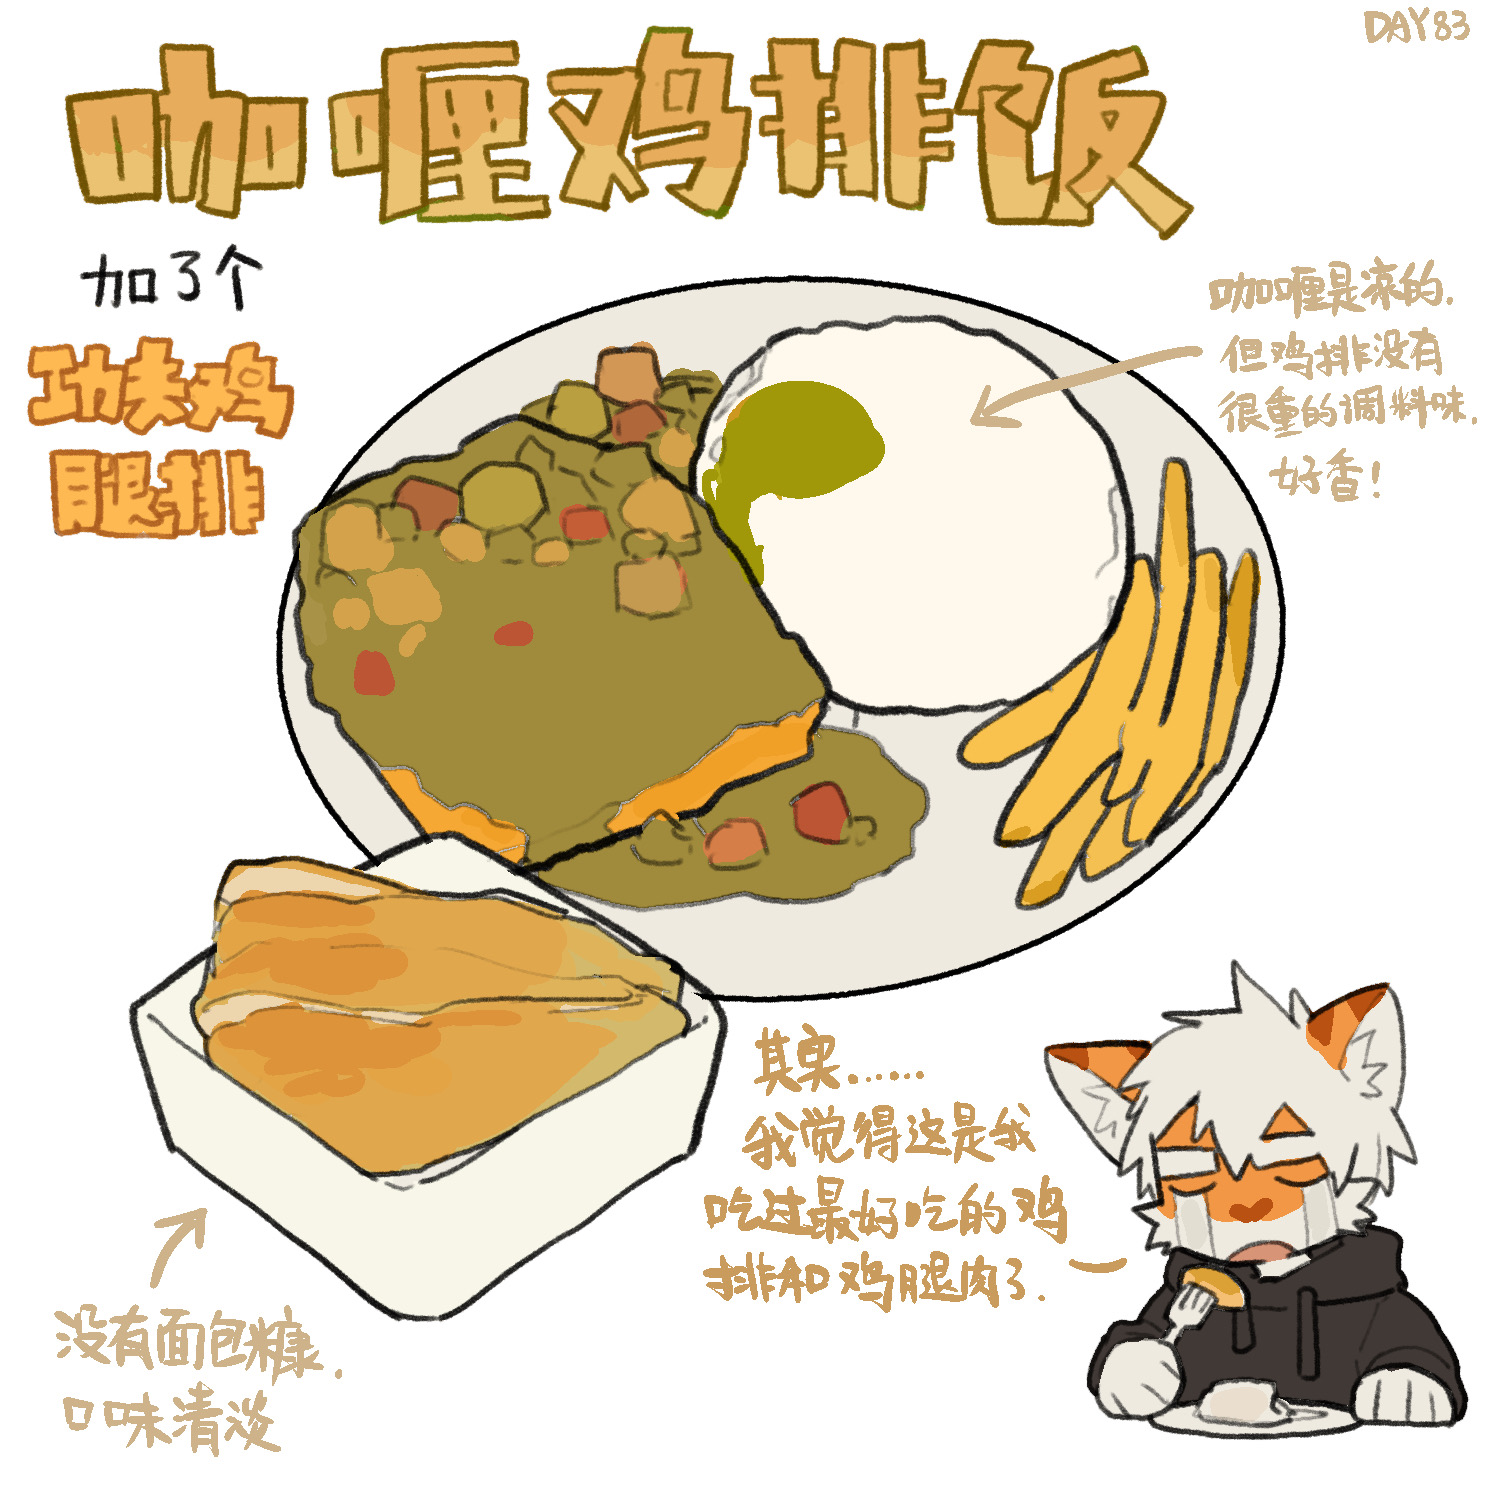 DAY83
咖喱鸡排饭
加了个
功夫鸡
腿排
咖喱是凉的.
但鸡排没有
很重的调料味.
好香!
其实......
我觉得这是我
吃过最好吃的鸡
排和鸡腿肉了.
没有面包糠.
口味清淡